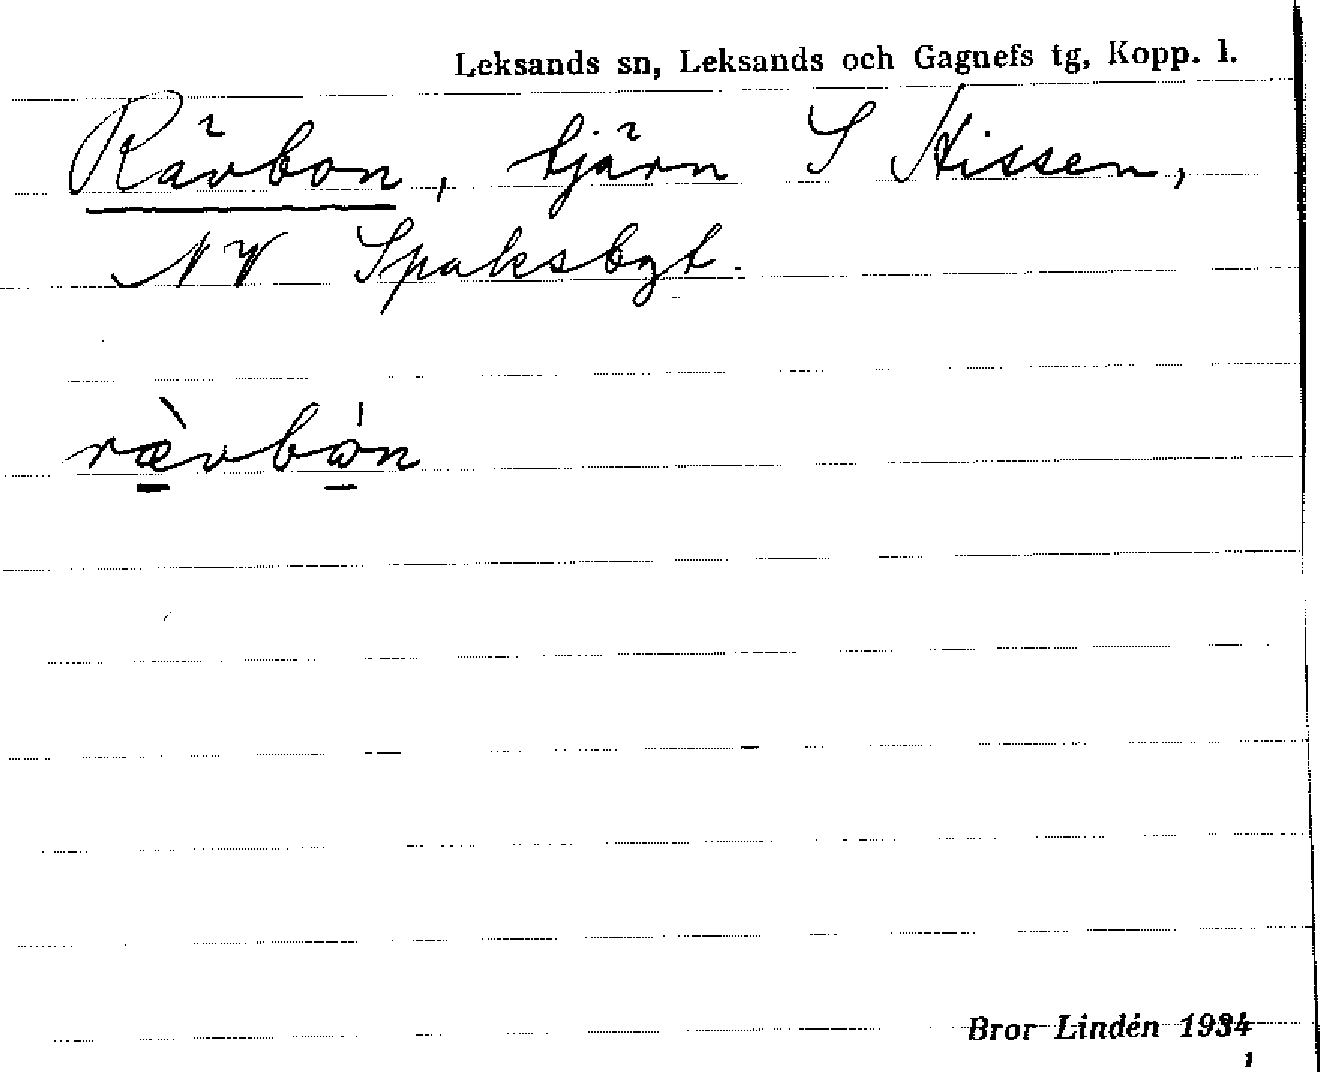 Leksands sn, Leksands och Gagnefs tg, Kopp. l.
Rävbon, tjärn S Hissen,
NV Spaksbyt.
ræ̀vbɷ́n
Bror Lindén 1934